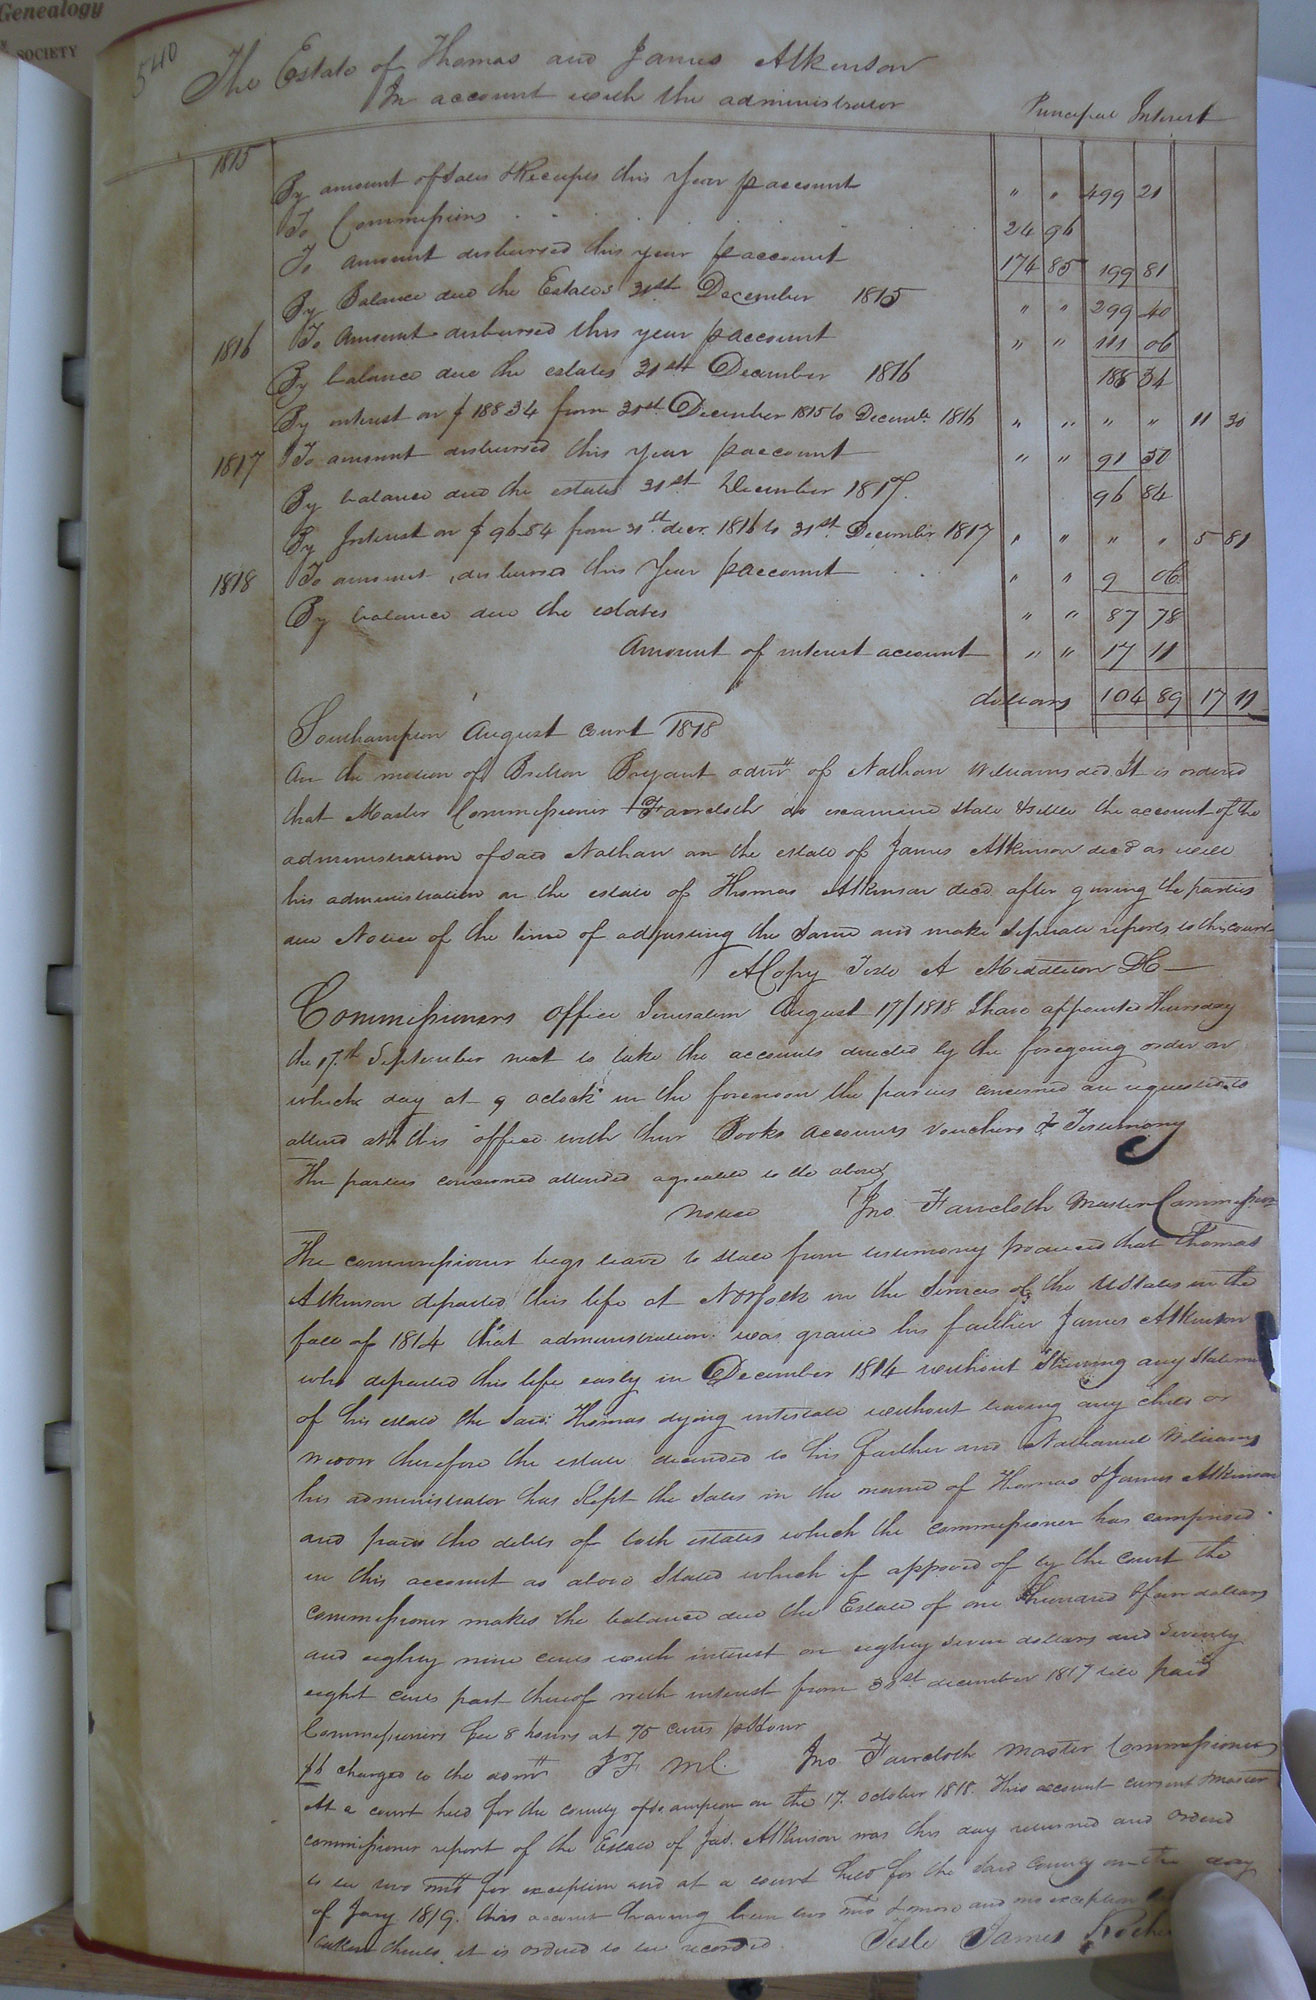 Genealogy
SOCIETY
540
The Estate of Thomas and James Atkinson
In account with the administrator
Principal Interest
1815
By amount of Sales & Receipts this Year p account " " 499 21
To Commissions 24 96
To amount disbursed this year p account 174 85 199 81
By Balance due the Estates 31st December 1815 " " 299 40
1816 To Amount disbursed this year p account " " 111 06
By balance due the estates 31st December 1816 188 34
By interest on $188 34 from 31st December 1815 to Decemb. 1816 " " " " 11 30
1817 To amount disbursed this Year p account " " 91 50
By balance due the estates 31st December 1817. 96 84
By Interest on $96.84 from 31st decr. 1816 to 31st December 1817 " " " " 5 81
1818 To amount disbursed this Year p account " " 9 06
By balance due the estates " " 87 78
Amount of interest account " " 17 11
dollars 104 89 17 11
Southampton August Court 1818
On the motion of Britton Bryant admr of Nathan Williams decd It is ordered
that Master Commissioner Faircloth do examine state & settle the account of the
administration of said Nathan on the estate of James Atkinson decd as well
his administration on the estate of Thomas Atkinson decd after giving the parties
due Notice of the time of adjusting the Same and make Seperate reports to the court
A Copy Teste A Middleton DC
Commissioners office Jerusalem August 17/1818 I have appointed Thursday
the 17th September next to take the accounts directed by the foregoing order on
which day at 9 oclock in the forenoon the parties concerned are requested to
attend at this office with their Books accounts Vouchers & Testimony
The parties concerned attended agreeable to the above
notice Jno Faircloth Master Commissioner
The commissioner begs leave to state from testimony produced that Thomas
Atkinson departed this life at Norfolk in the Services of the UStates in the
fall of 1814 that administration was granted his father James Atkinson
who departed this life early in December 1814 without any Statement
of his estate the Said Thomas dying intestate without leaving any child or
widow therefore the estate decended to his father and Nathaniel Williams
his administrator has Kept the Sales in the names of Thomas & James Atkinson
and paid the debts of both estates which the commissioner has comprised
in this account as above Stated which if approved of by the Court the
commissioner makes the balance due the Estate of one hundred & four dollars
and eighty nine cents with interest on eighty Seven dollars and Seventy
eight cents part thereof with interest from 31st december 1817 till paid
Commissioners fee 8 hours at 75 cents p Hour
$6 charged to the admr JF MC. Jno. Faircloth Master Commissioner
At a court held for the county of Soampton on the 17. October 1818. This account current Master
commissioner report of the Estate of Jas. Atkinson was this day returned and Ordered
to lie two mths for exception and at a court held for the Said County on the day
of Jany 1819. this account having lain two mths & more and no exception
taken thereto it is ordered to be recorded.
Teste James